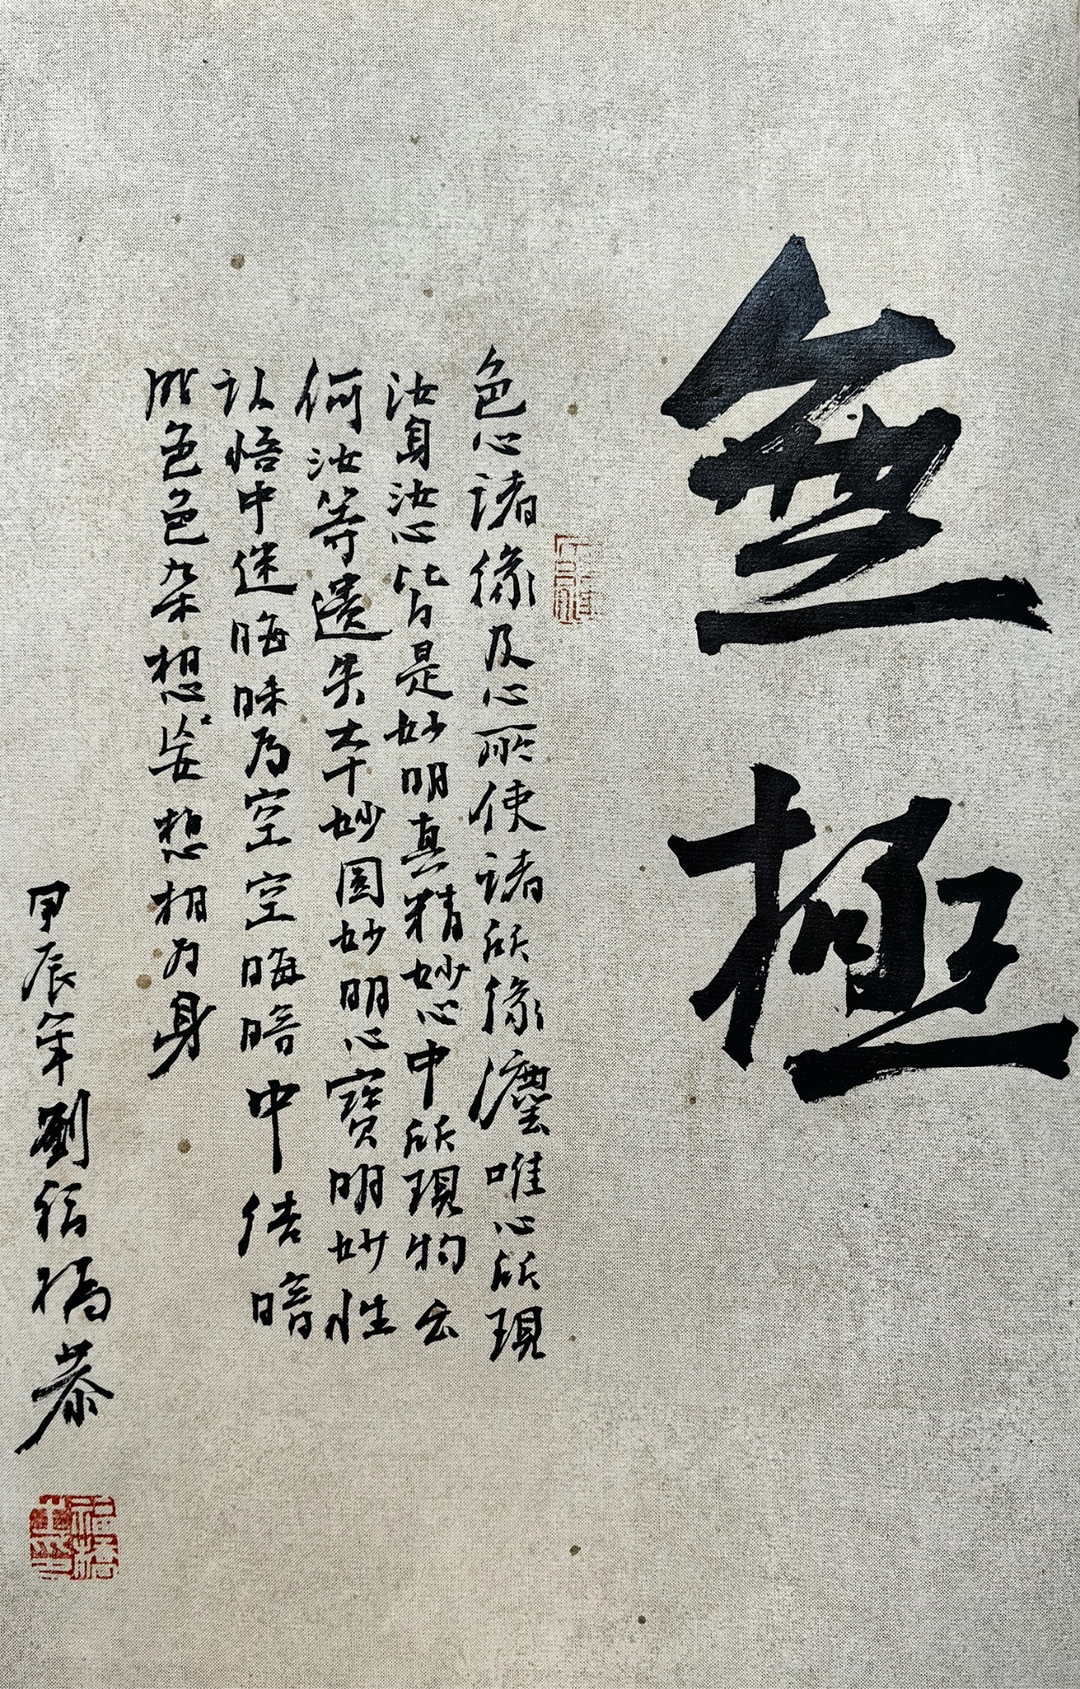 無極
色心諸緣及心所使諸所緣塵唯心所現
汝身汝心皆是妙明真精妙心中所現物云
何汝等遺失本妙圓妙明心寶明妙性
认悟中迷晦昧為空空晦暗中结暗
為色色杂想妄想想相为身
甲辰年劉福橋恭